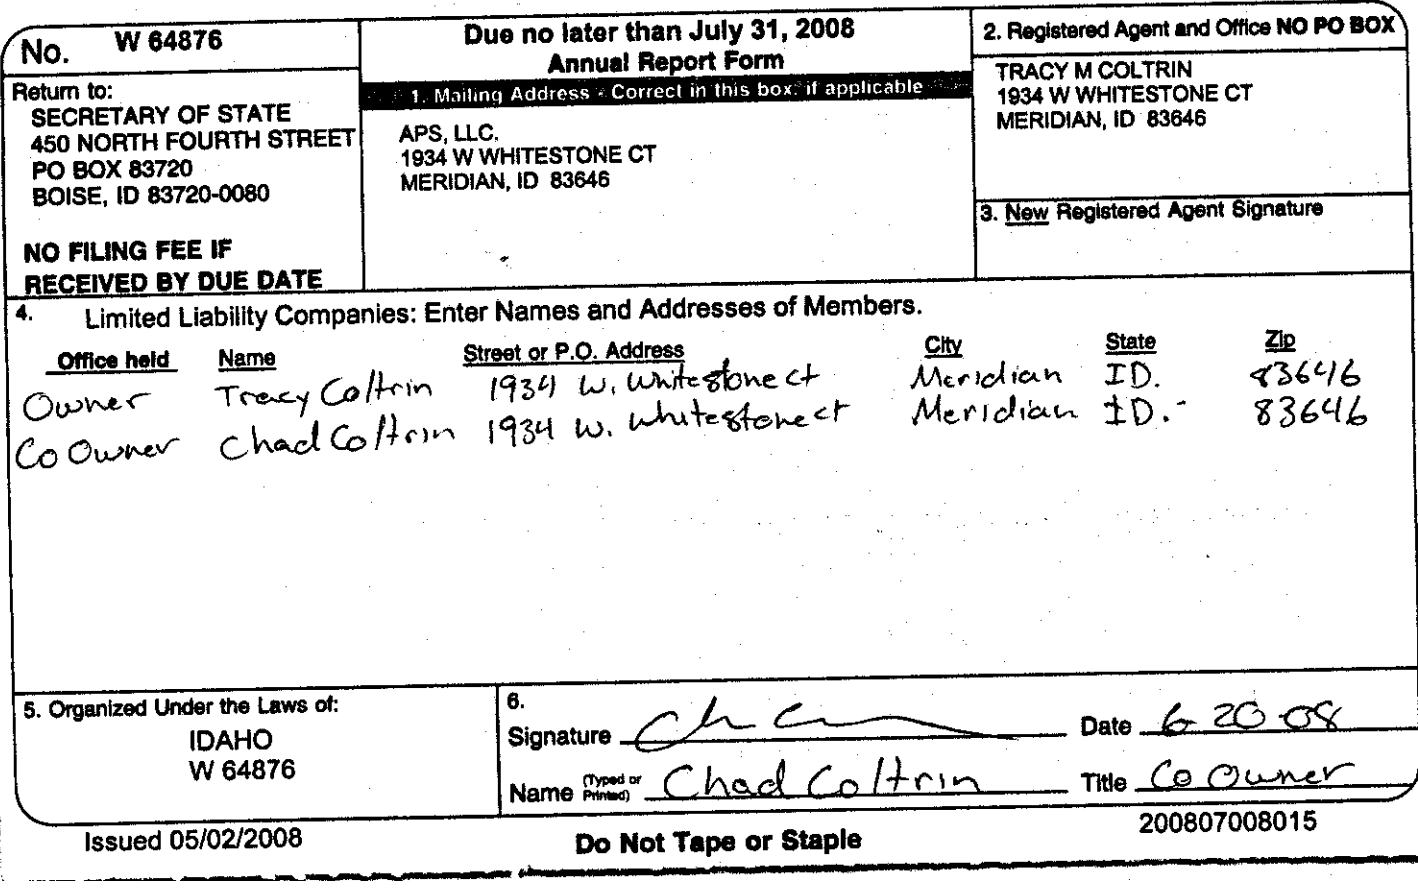 No. W 64876
Return to:
SECRETARY OF STATE
450 NORTH FOURTH STREET
PO BOX 83720
BOISE, ID 83720-0080
NO FILING FEE IF
RECEIVED BY DUE DATE
Due no later than July 31, 2008
Annual Report Form
1. Mailing Address - Correct in this box if applicable
APS, LLC.
1934 W WHITESTONE CT
MERIDIAN, ID 83646
2. Registered Agent and Office NO PO BOX
TRACY M COLTRIN
1934 W WHITESTONE CT
MERIDIAN, ID 83646
3. New Registered Agent Signature
4. Limited Liability Companies: Enter Names and Addresses of Members.
Office held Name Street or P.O. Address City State Zip
Owner Tracy Coltrin 1934 W. Whitestone ct Meridian ID. 83646
Co Owner Chad Coltrin 1934 W. Whitestone ct Meridian ID.- 83646
5. Organized Under the Laws of:
IDAHO
W 64876
6.
Signature Date 6-20-08
Name (Typed or Printed) Chad Coltrin Title Co Owner
Issued 05/02/2008 Do Not Tape or Staple 200807008015